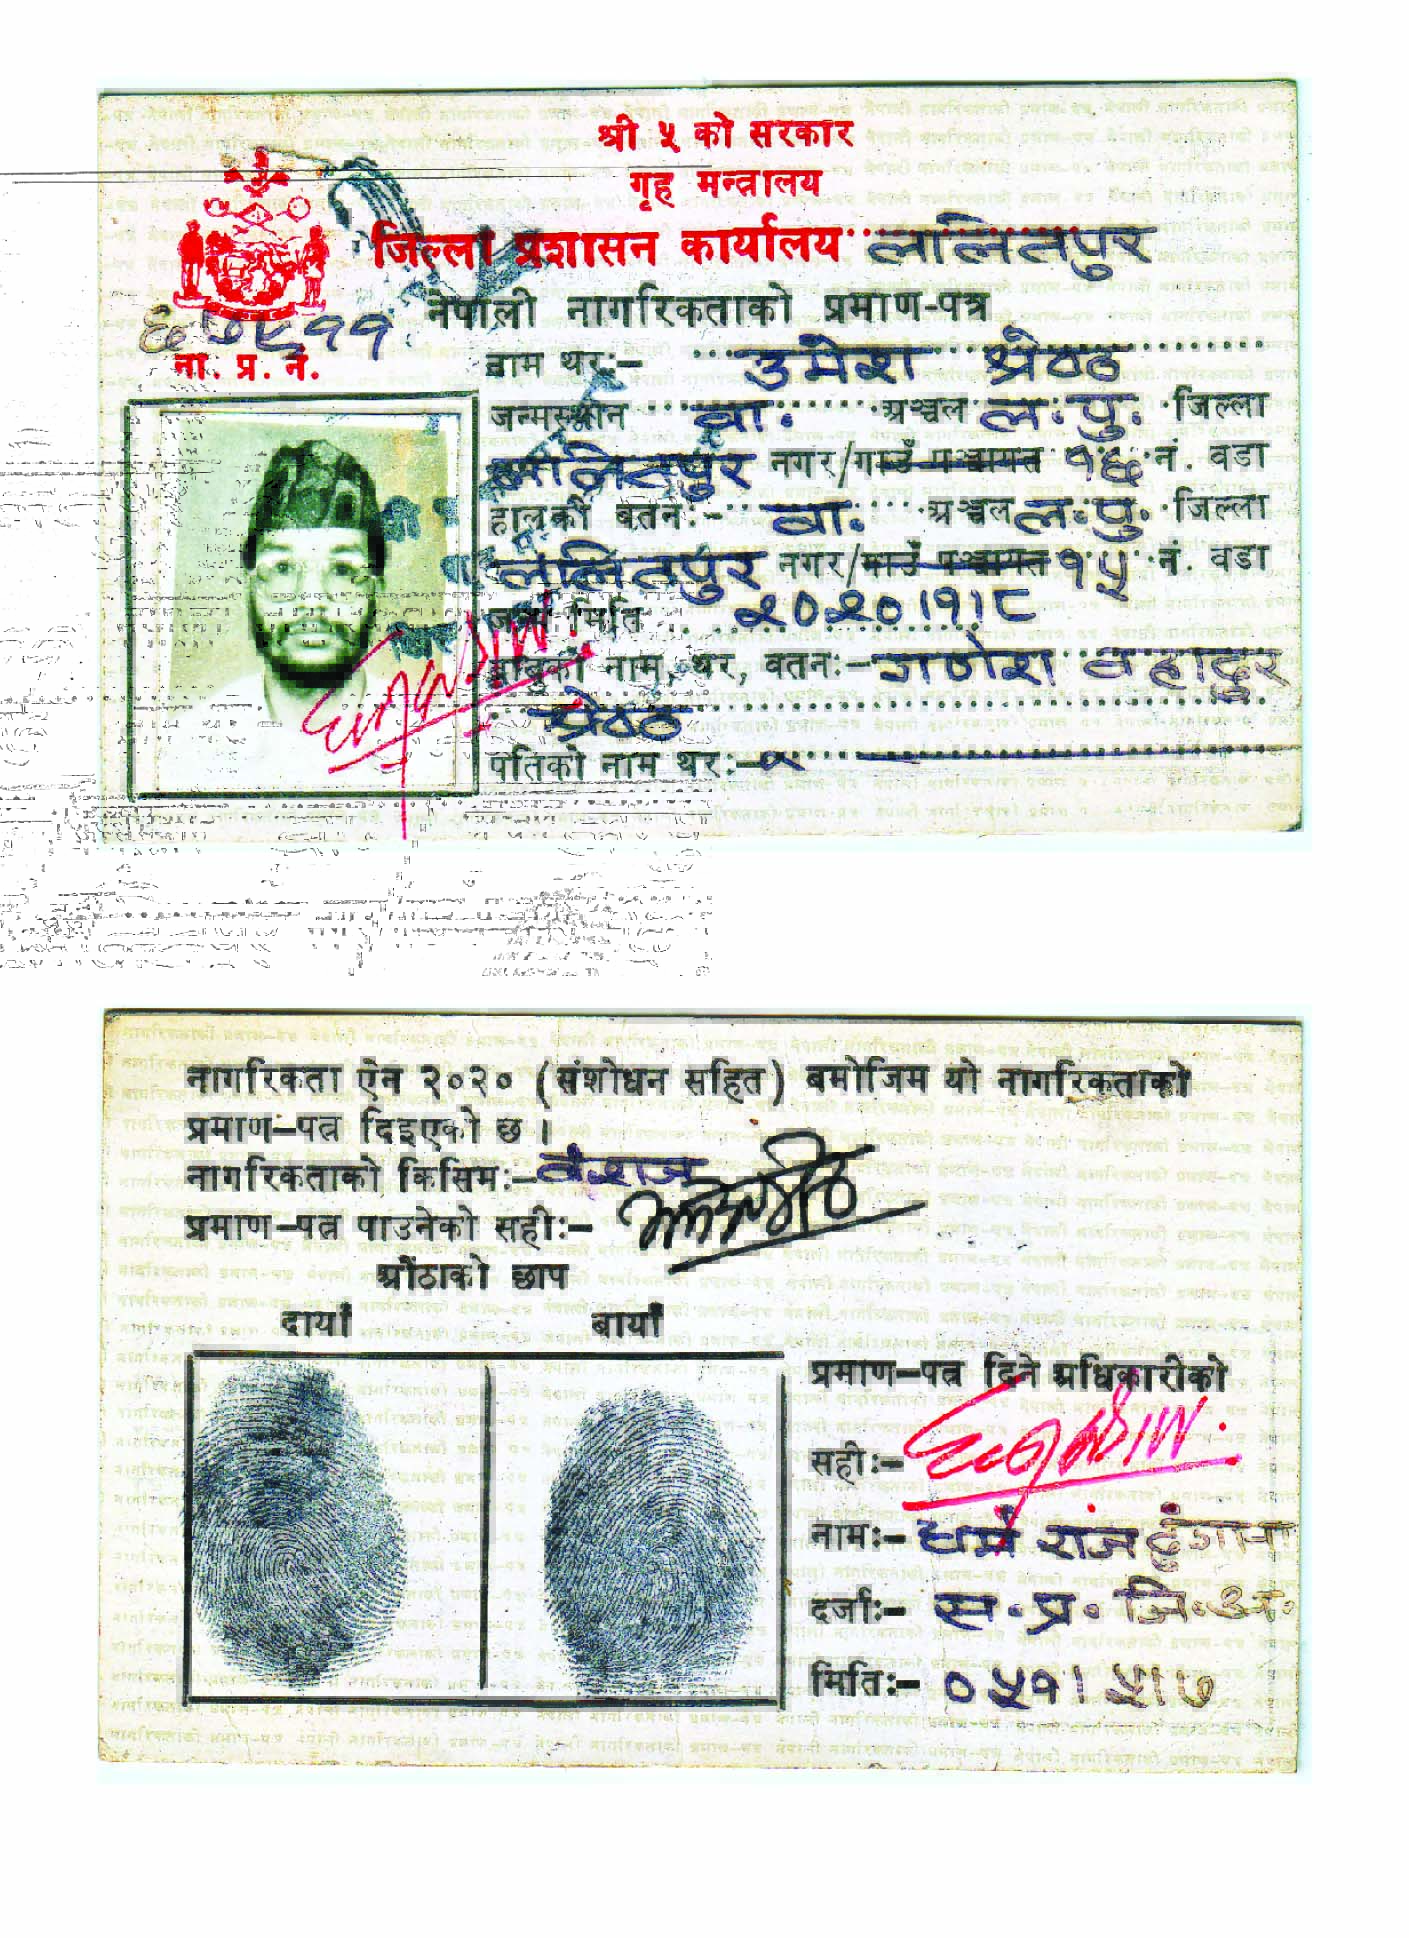 श्री ५ को सरकार
गृह मन्त्रालय
जिल्ला प्रशासन कार्यालय ललितपुर
नेपाली नागरिकताको प्रमाण-पत्र
ना. प्र. नं.
नाम थर:- उमेश श्रेष्ठ
जन्मस्थान बा. अञ्चल ल. पु. जिल्ला
ललितपुर नगर/गाउँ पञ्चायत १६ नं. वडा
हालको वतन:- बा. अञ्चल ल. पु. जिल्ला
ललितपुर नगर/गाउँ पञ्चायत १५ नं. वडा
जन्म मिति २०२०।१।८
बाबुको नाम, थर, वतन:- गणेश बहादुर
श्रेष्ठ
पतिको नाम थर:-
नागरिकता ऐन २०२० (संशोधन सहित) बमोजिम यो नागरिकताको
प्रमाण-पत्र दिइएको छ ।
नागरिकताको किसिम:- वंशज
प्रमाण-पत्र पाउनेको सही:-
औंठाको छाप
दायाँ बायाँ
प्रमाण-पत्र दिने अधिकारीको
सही:-
नाम:- धर्म राज ढुंगाना
दर्जा:- स. प्र. जि. अ.
मिति:- ०५१।५।७